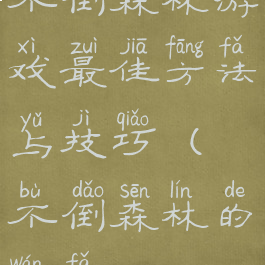 不倒森林游
xì zuì jiā fāng fǎ
戏最佳方法
yǔ jì qiǎo
与技巧（
bù dǎo sēn lín de
不倒森林的
wán fǎ